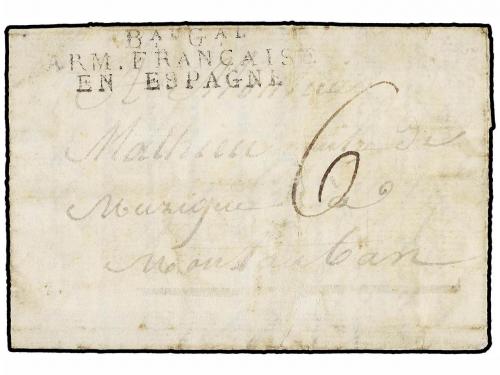 BAU GAL
ARM. FRANÇAISE
EN ESPAGNE
A Monsieur
Mathieu de
6
Muzique a
Montauban